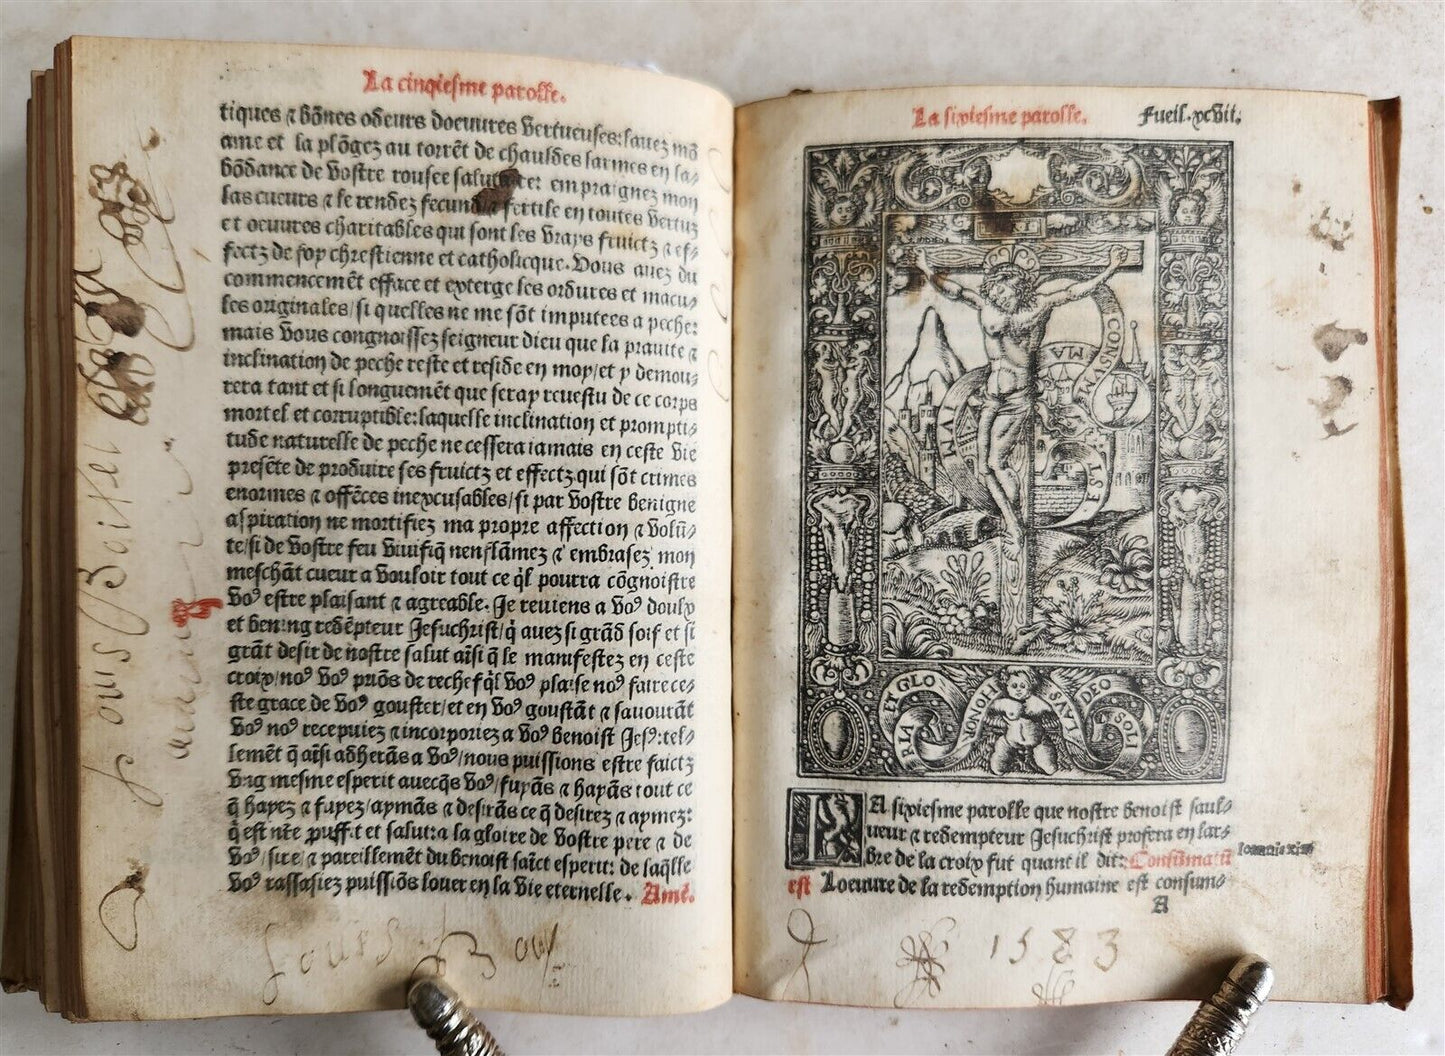 La cinqiesme parolle.
tiques ⁊ bõnes odeurs doeuures vertueuses: lauez mõ
ame et la plõgez au torrẽt de chauldes larmes en la⸗
bõdance de vostre rousee salutaire: empraignez mon
las cueurs ⁊ le rendez fecund ⁊ fertile en toutes vertuz
et oeuures charitables qui sont les vrays fruictz ⁊ ef⸗
fectz de foy chrestienne et catholicque. Vous auez du
commencemẽt efface et exterge les ordures et macu⸗
les originales/ si quelles ne me sõt imputees a peche:
mais vous congnoissez seigneur dieu que la prauite ⁊
inclination de peche reste et reside en moy/ et y demou⸗
rera tant et si longuemẽt que seray reuestu de ce corps
mortel et corruptible: laquelle inclination et prompti⸗
tude naturelle de peche ne cessera iamais en ceste vie
presẽte de produire ses fruictz et effectz qui sõt crimes
enormes ⁊ offẽces inexcusables/ si par vostre benigne
aspiration ne mortifiez ma propre affection ⁊ volũ⸗
te/ si de vostre feu viuifiq̃ nenflãmez ⁊ embrasez mon
meschãt cueur a vouloir tout ce q̃l pourra cõgnoistre
voꝰ estre plaisant ⁊ agreable. Je reuiens a voꝰ doulx
et bening redẽpteur Jesuchrist/ q̃ auez si grãd soif et si
grãt desir de nostre salut aĩsi q̃ le manifestez en ceste
croix/ noꝰ voꝰ priõs de rechef q̃l voꝰ plaise noꝰ faire ce⸗
ste grace de voꝰ gouster/ et en voꝰ goustãt ⁊ sauourãt
voꝰ noꝰ recepuiez ⁊ incorporiez a voꝰ benoist Jesꝰ: tel⸗
lemẽt q̃ aĩsi adherãs a voꝰ/ nous puissions estre faictz
vng mesme esperit auecq̃s voꝰ/ fuyãs ⁊ hayãs tout ce
q̃ hayez ⁊ fuyez/ aymãs ⁊ desirãs ce q̃ desirez ⁊ aymez:
q̃ est nr̃e ꝓuffit et salut: a la gloire de vostre pere ⁊ de
voꝰ/ sire/ ⁊ pareillemẽt du benoist saĩct esperit: de laq̃lle
voꝰ rassasiez puissiõs louer en la vie eternelle. Amẽ.
La sixiesme parolle. Fueil. xcvii.
CONSVM
MA
TVM
EST
RIA ET GLO
HONOR
LAVS DEO
SOLI
LA sixiesme parolle que nostre benoist saul⸗
ueur ⁊ redempteur Jesuchrist profera en lar⸗
bre de la croix fut quant il dit: Consũmatũ
est Loeuure de la redemption humaine est consum⸗
A
1583